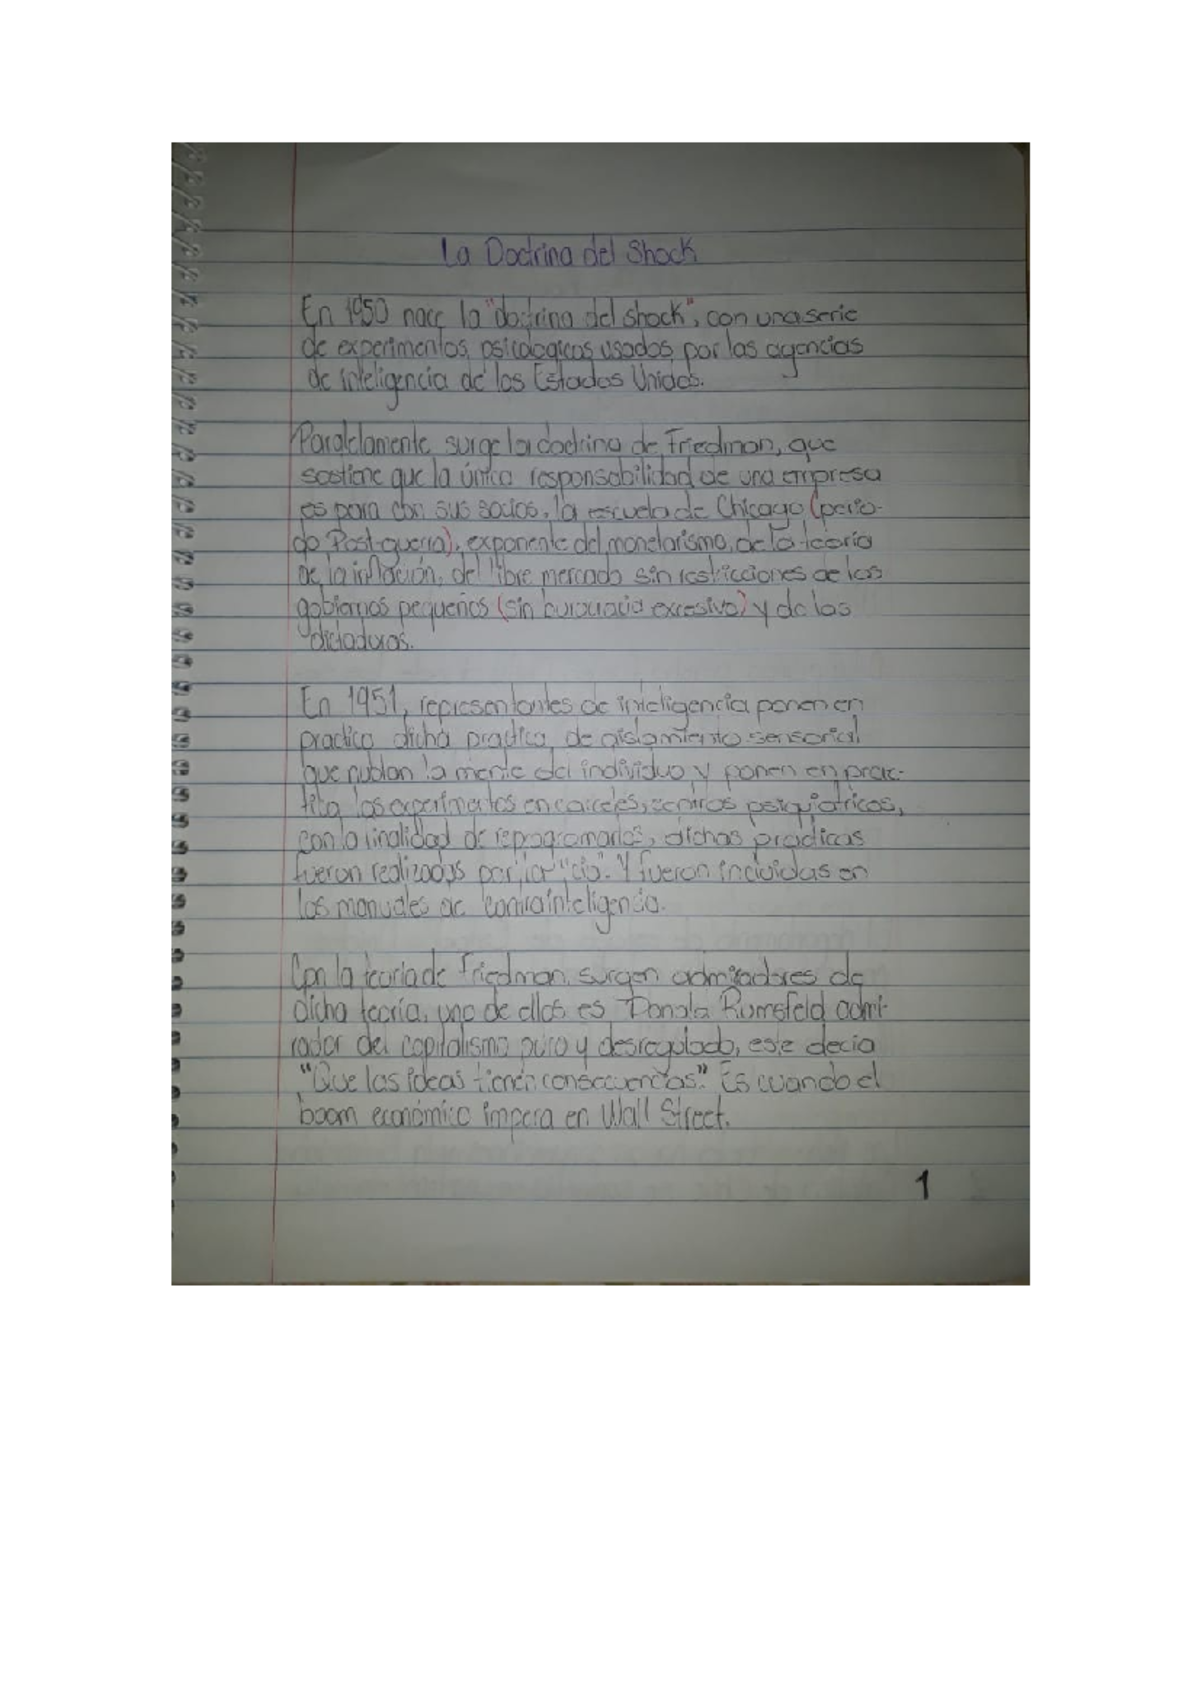 La Doctrina del Shock
En 1950 nace la "doctrina del shock", con una serie
de experimentos psicologicos usados por las agencias
de inteligencia de los Estados Unidos.
Paralelamente surge la doctrina de Friedman, que
sostiene que la única responsabilidad de una empresa
es para con sus socios, la escuela de Chicago (perio-
do Post-guerra), exponente del monetarismo, de la teoria
de la inflación, del libre mercado sin restricciones de los
gobiernos pequeños (sin burocracia excesiva) y de las
dictaduras.
En 1951, representantes de inteligencia ponen en
practica dicha practica, de aislamiento sensorial
que nublan la mente del individuo y ponen en prac-
tica los experimentos en carceles, centros psiquiatricos,
con la finalidad de reprogramarlos, dichas practicas
fueron realizadas por la "cia". Y fueron incluidas en
los manuales de contrainteligencia.
Con la teoria de Friedman, surgen admiradores de
dicha teoría, uno de ellos es Donald Rumsfeld admi-
rador del capitalismo puro y desregulado, este decia
"Que las ideas tienen consecuencias". Es cuando el
boom económico impera en Wall Street.
1